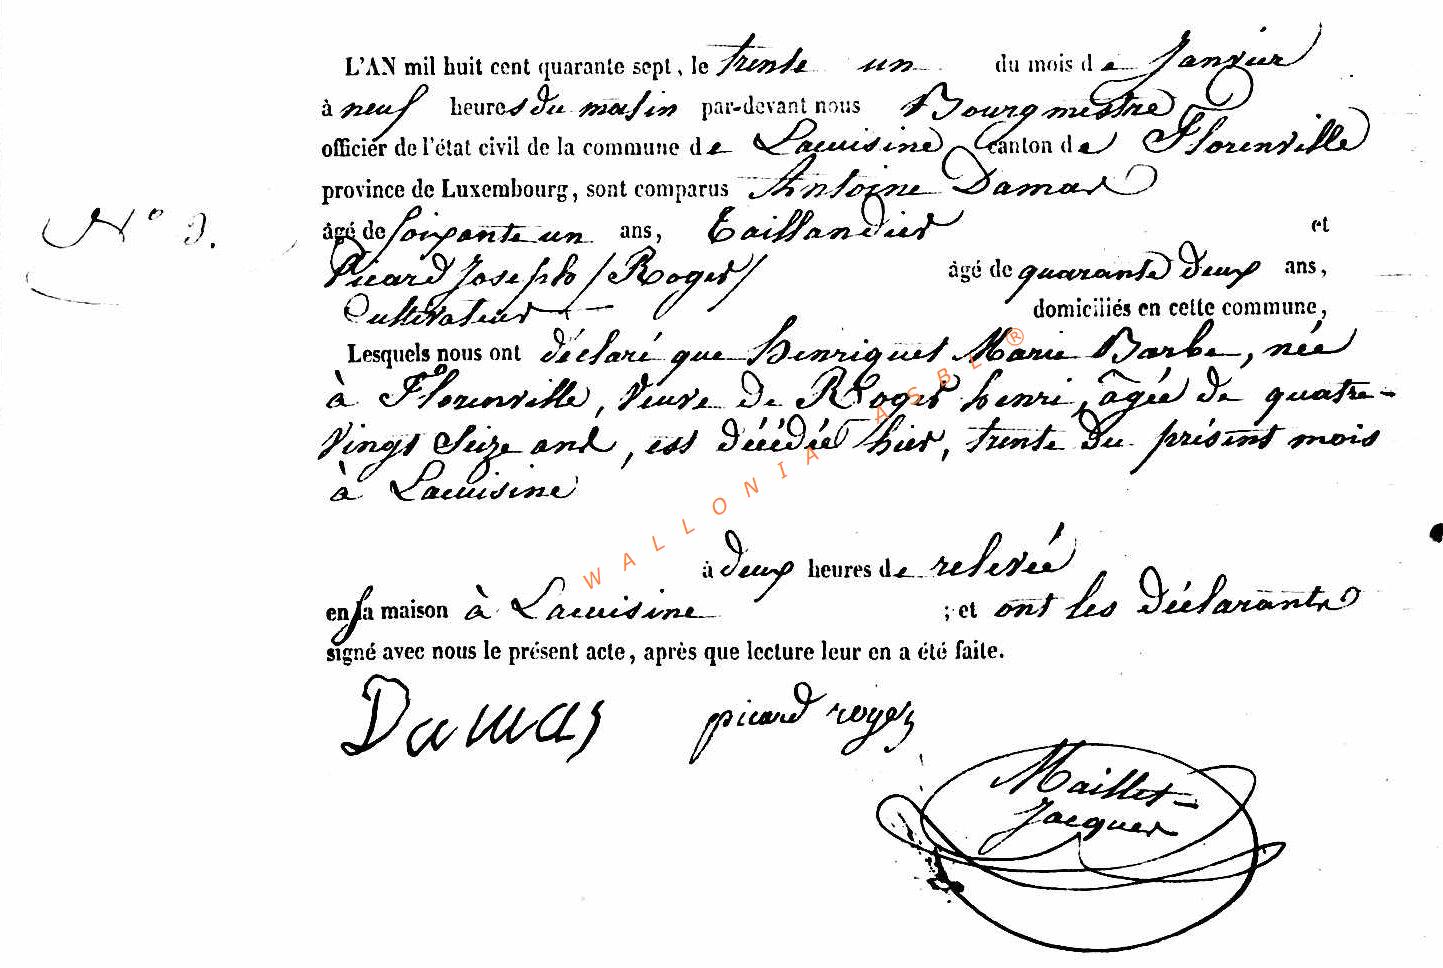 L'AN mil huit cent quarante sept, le trente un du mois de Janvier
à neuf heures du matin par-devant nous Bourgmestre
officier de l'état civil de la commune de Lacuisine canton de Florenville
province de Luxembourg, sont comparus Antoine Damas
N° 3.
âgé de soixante un ans, Taillandier et
Picard Joseph /Roger/ âgé de quarante deux ans,
Cultivateur domiciliés en cette commune,
Lesquels nous ont déclaré que henriquet Marie Barbe, née
à Florenville, veuve de Roger henri, âgée de quatre-
vingt seize ans, est décédée hier, trente du présent mois
à Lacuisine
à deux heures de relevée
en sa maison à Lacuisine ; et ont les déclarants
signé avec nous le présent acte, après que lecture leur en a été faite.
Damas picard roger
Maillet-
Jacques
WALLONIA ASBL ®